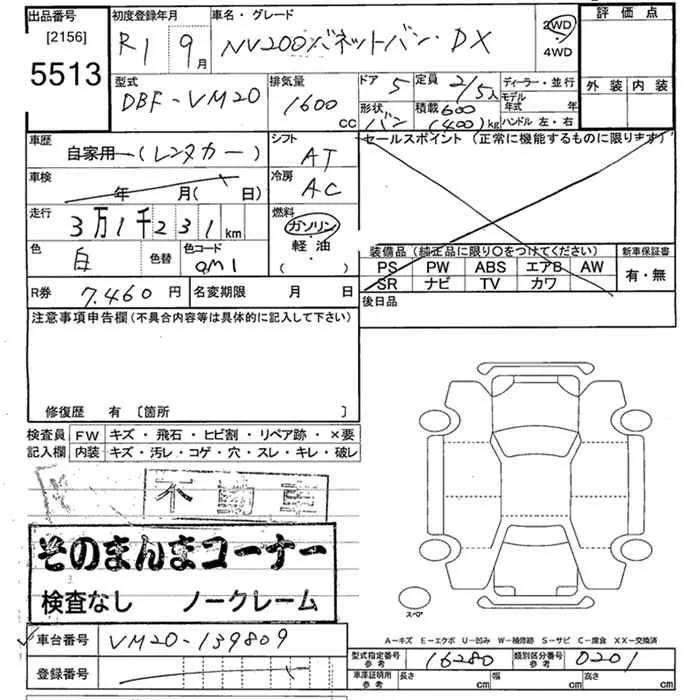 出品番号 初度登録年月 車名・グレード 評価点
[2156] R1 9月 NV200バネットバン・DX 2WD
5513 4WD 外装 内装
型式 排気量 ドア 5 定員 2/5人 ディーラー・並行
DBF-VM20 1600 CC 形状 バン 積載 600 (400)kg モデル年式 年
ハンドル 左・右
車歴 シフト セールスポイント (正常に機能するものに限ります)
自家用-(レンタカー) AT
車検 冷房
年 月( 日) AC
走行 燃料
3万1千231km ガソリン
軽油
( )
色 白 色替 色コード QM1
装備品 (純正品に限り〇をつけてください) 新車保証書
PS PW ABS エアB AW 有・無
SR ナビ TV カワ
R券 7,460円 名変期限 月 日 後日品
注意事項申告欄 (不具合内容等は具体的に記入して下さい)
修復歴 有 [箇所 ]
検査員 FW キズ・飛石・ヒビ割・リペア跡・×要
記入欄 内装 キズ・汚レ・コゲ・穴・スレ・キレ・破レ
不動車
そのまんまコーナー
検査なし ノークレーム
スペア
A-キズ E-エクボ U-凹み W-補修跡 S-サビ C-腐食 XX-交換済
車台番号 VM20-139809
登録番号
型式指定番号 参考 16280 類別区分番号 参考 0201
車庫証明用 参考 長さ cm 幅 cm 高さ cm